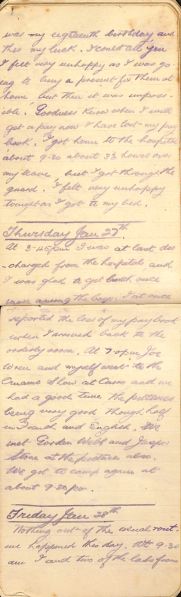 was my eighteenth birthday and
this my luck. I can tell you
I felt very unhappy as I was go-
ing to buy a present for them at
home but then it was imposs-
ible. Goodness knows when I will
get a pay now I have lost my pay
book. I got home to the hospital
about 9.20 about 3½ hours over
my leave, but I got through the
guard. I felt very unhappy
tonight as I got to my bed.
Thursday Jan 27th
At 3.45pm I was at last dis-
charged from the hospital and
I was glad to get back once
more among the boys. I at once
reported the loss of my paybook
when I moved back to the
orderly room. At 7 pm Joe
and myself went to the
Cinema Show at Camp and we
had a good time. The pictures
being very good though half
in French and English. We
met Gordon Webb and
Stone at the pictures also.
We got to camp again at
about 9.30 pm.
Friday Jan 28th
Nothing out of the usual rout-
ine happened this day. At 9.30
am I and two of the lads from